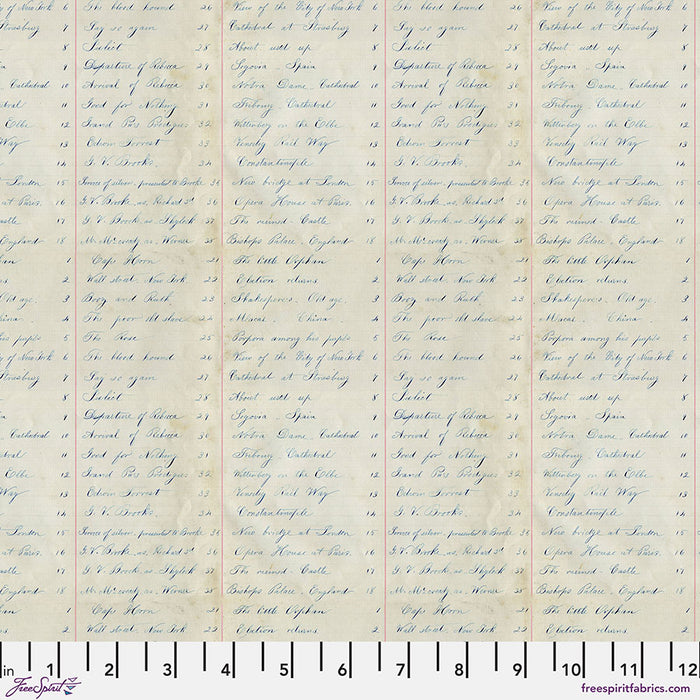 of New York 6 The blood hound 26 View of the City of New York 6 The blood hound 26 View of the City of New York 6
Strasburg 7 Say so again 27 Cathedral at Strasburg 7 Say so again 27 Cathedral at Strasburg 7
8 Juliet 28 About used up 8 Juliet 28 About used up 8
9 Departure of Rebecca 29 Segovia - Spain 9 Departure of Rebecca 29 Segovia - Spain 9
Cathedral 10 Arrival of Rebecca 30 Notra Dame - Cathedral 10 Arrival of Rebecca 30 Notra Dame - Cathedral 10
11 Good for Nothing 31 Cathedral 11 Good for Nothing 31 Cathedral 11
Elbe 12 Grand Pa's 32 Wittenberg on the Elbe 12 Grand Pa's 32 Wittenberg on the Elbe 12
Way 13 Edwin Forrest 33 Rail Way 13 Edwin Forrest 33 Rail Way 13
14 G. V. Brooke. 34 Constantinople 14 G. V. Brooke. 34 Constantinople 14
at London 15 of silver, presented to Brooke 35 New bridge at London 15 of silver, presented to Brooke 35 New bridge at London 15
at Paris. 16 G. V. Brooke as Richard 3d 36 Opera House at Paris. 16 G. V. Brooke as Richard 3d 36 Opera House at Paris. 16
Castle 17 G. V. Brook as Shylock 37 The ruined - Castle 17 G. V. Brook as Shylock 37 The ruined - Castle 17
England 18 Mr. as, 38 Bishops Palace - England 18 Mr. as, 38 Bishops Palace - England 18
1 Cape Horn 21 The little Orphan 1 Cape Horn 21 The little Orphan 1
2 Wall street, New York 22 Election returns 2 Wall street, New York 22 Election returns 2
Old age. 3 Boy and 23 Shakespere's - Old age 3 Boy and 23 Shakespere's - Old age 3
China 4 The poor old slave 24 Macao - China 4 The poor old slave 24 Macao - China 4
his pupils 5 The Rose 25 Porpora among his pupils 5 The Rose 25 Porpora among his pupils 5
of New York 6 The blood hound 26 View of the City of New York 6 The blood hound 26 View of the City of New York 6
Strasburg 7 Say so again 27 Cathedral at Strasburg 7 Say so again 27 Cathedral at Strasburg 7
8 Juliet 28 About used up 8 Juliet 28 About used up 8
9 Departure of Rebecca 29 Segovia - Spain 9 Departure of Rebecca 29 Segovia - Spain 9
Cathedral 10 Arrival of Rebecca 30 Notra Dame - Cathedral 10 Arrival of Rebecca 30 Notra Dame - Cathedral 10
11 Good for Nothing 31 Cathedral 11 Good for Nothing 31 Cathedral 11
Elbe 12 Grand Pa's 32 Wittenberg on the Elbe 12 Grand Pa's 32 Wittenberg on the Elbe 12
Way 13 Edwin Forrest 33 Rail Way 13 Edwin Forrest 33 Rail Way 13
14 G. V. Brooke. 34 Constantinople 14 G. V. Brooke. 34 Constantinople 14
at London 15 of silver, presented to Brooke 35 New bridge at London 15 of silver, presented to Brooke 35 New bridge at London 15
at Paris. 16 G. V. Brooke as Richard 3d 36 Opera House at Paris. 16 G. V. Brooke as Richard 3d 36 Opera House at Paris. 16
Castle 17 G. V. Brook as Shylock 37 The ruined - Castle 17 G. V. Brook as Shylock 37 The ruined - Castle 17
England 18 Mr. as, 38 Bishops Palace - England 18 Mr. as, 38 Bishops Palace - England 18
1 Cape Horn 21 The little Orphan 1 Cape Horn 21 The little Orphan 1
2 Wall street, New York 22 Election returns 2 Wall street, New York 22 Election returns 2
in 1 2 3 4 5 6 7 8 9 10 11 12
FreeSpirit freespiritfabrics.com